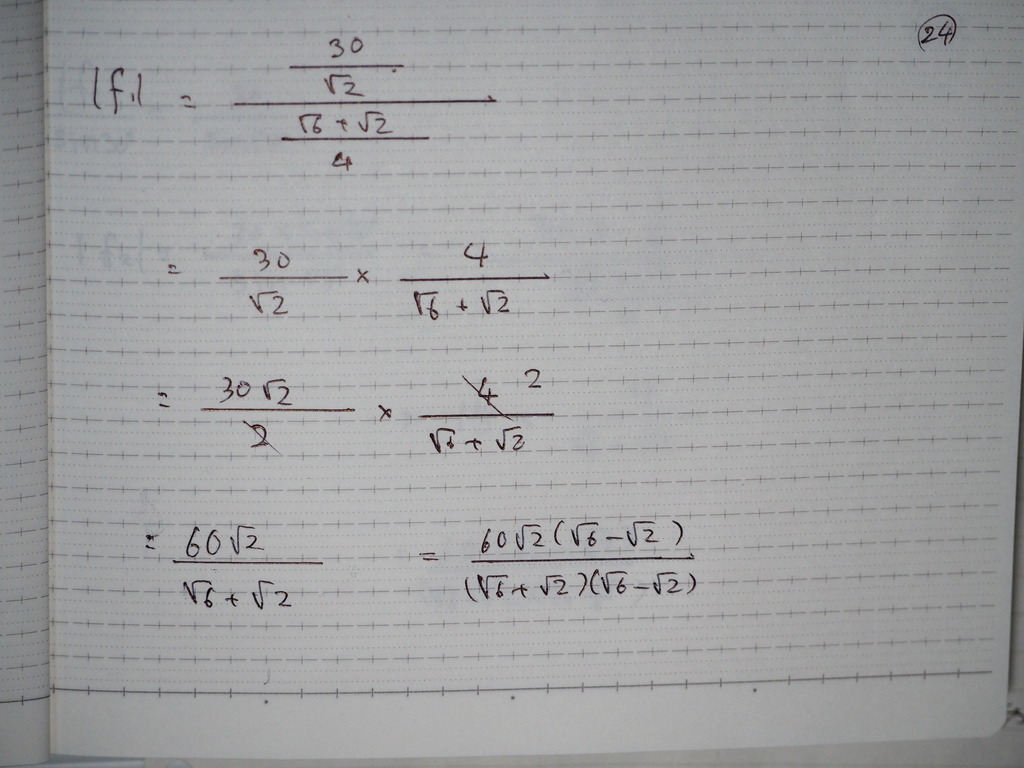 24
|f₁| = (30/√2)/((√6 + √2)/4)
= 30/√2 × 4/(√6 + √2)
= 30√2/2 × 4 2/(√6 + √2)
= 60√2/(√6 + √2) = 60√2(√6 − √2)/((√6 + √2)(√6 − √2))